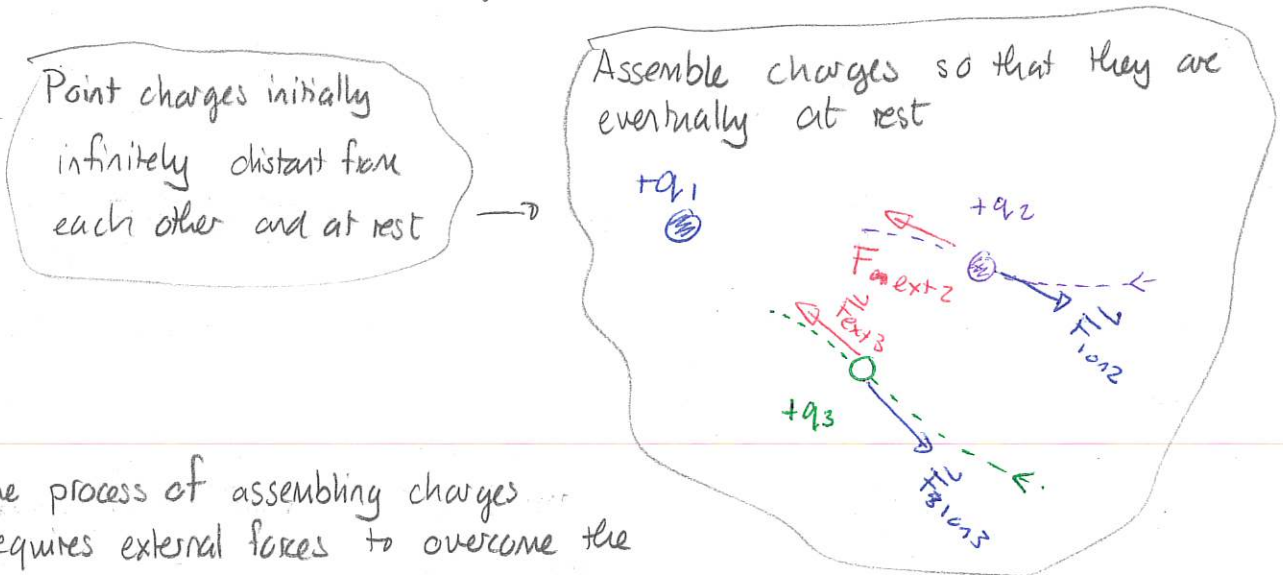 Point charges initially
infinitely distant from
each other and at rest
Assemble charges so that they are
eventually at rest
+q1
+q2
F ext2
F 1on2
F ext3
+q3
F 1on3
process of assembling charges
equires external forces to overcome the